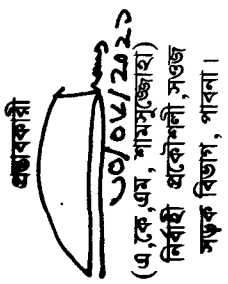 প্রস্তাবকারী
(এ,কে,এম, শামসুজ্জোহা)
নির্বাহী প্রকৌশলী,সওজ
সড়ক বিভাগ, পাবনা।